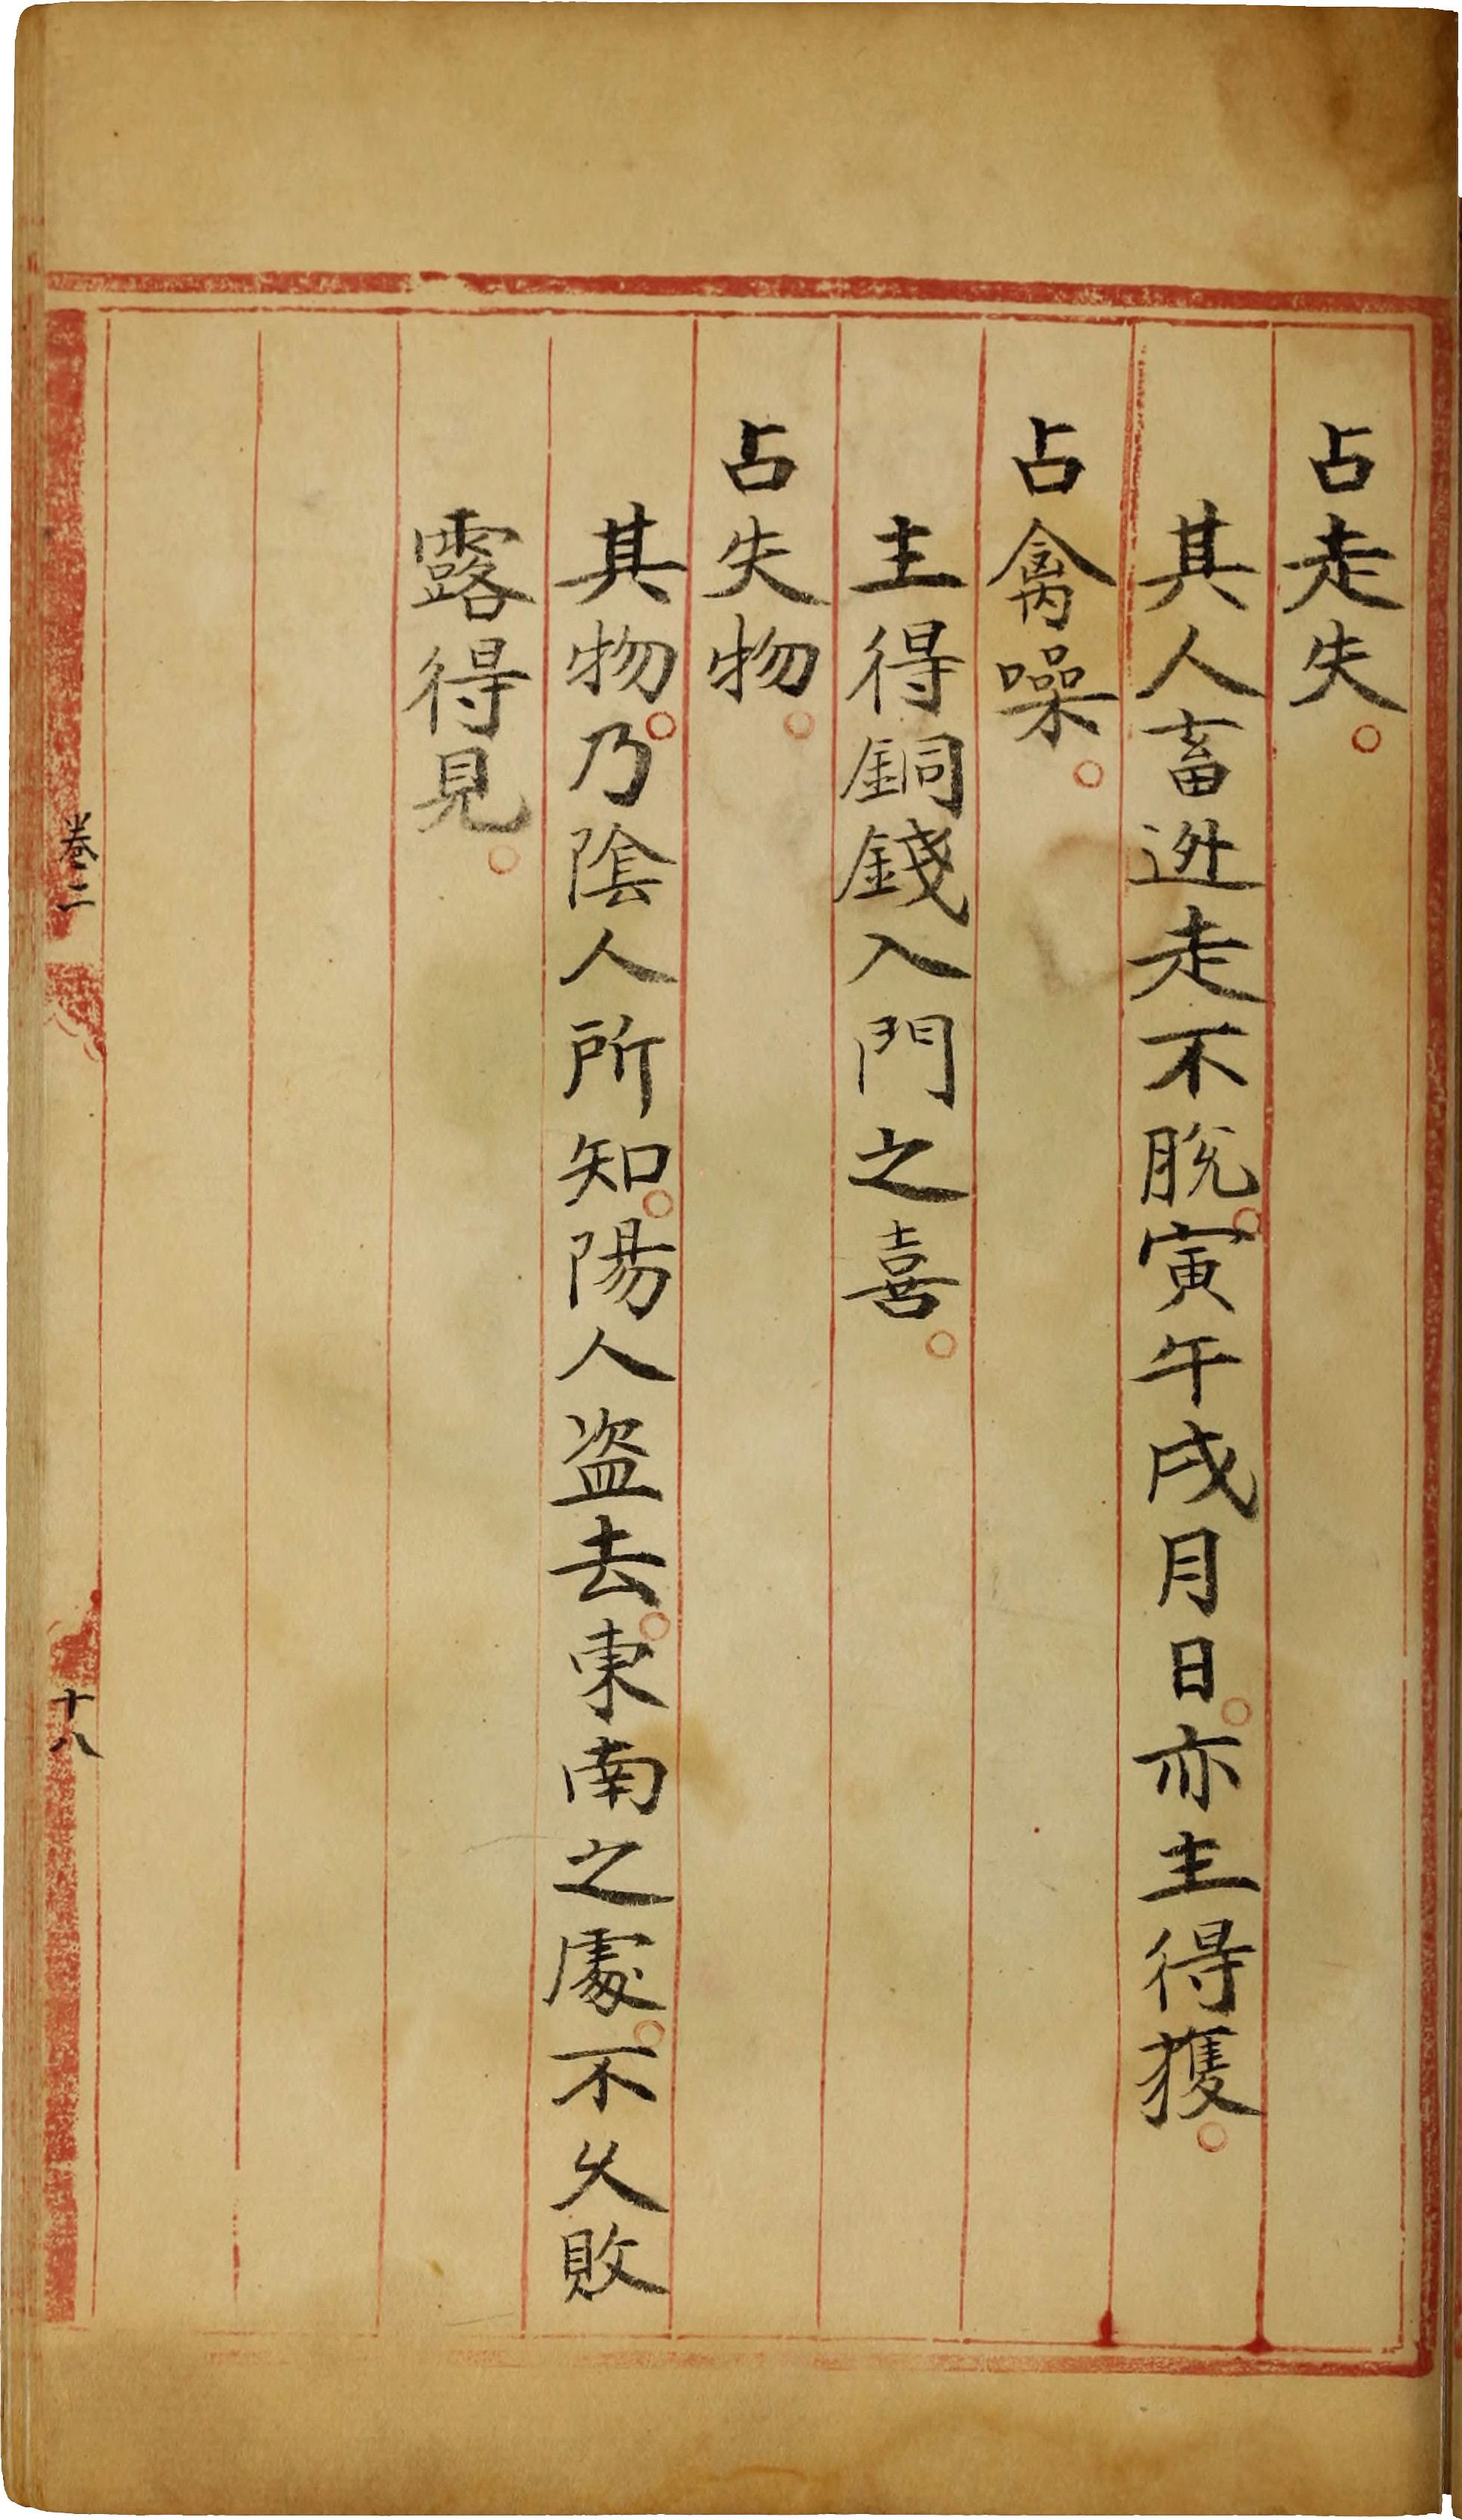 占走失。
其人畜迯走不脫。寅午戌月日。亦主得獲。
占禽噪。
主得銅錢入門之喜。
占失物。
其物。乃陰人所知。陽人盗去。東南之處。不久敗
露得見。
卷二
十八